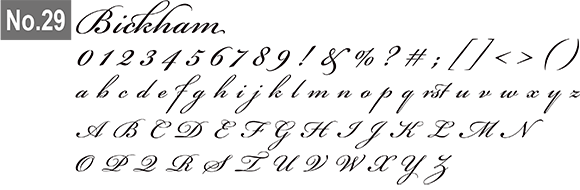 No.29 Bickham
0 1 2 3 4 5 6 7 8 9 ! & % ? # ; [ ] < > ( )
a b c d e f g h i j k l m n o p q r s t u v w x y z
A B C D E F G H I J K L M N
O P Q R S T U V W X Y Z